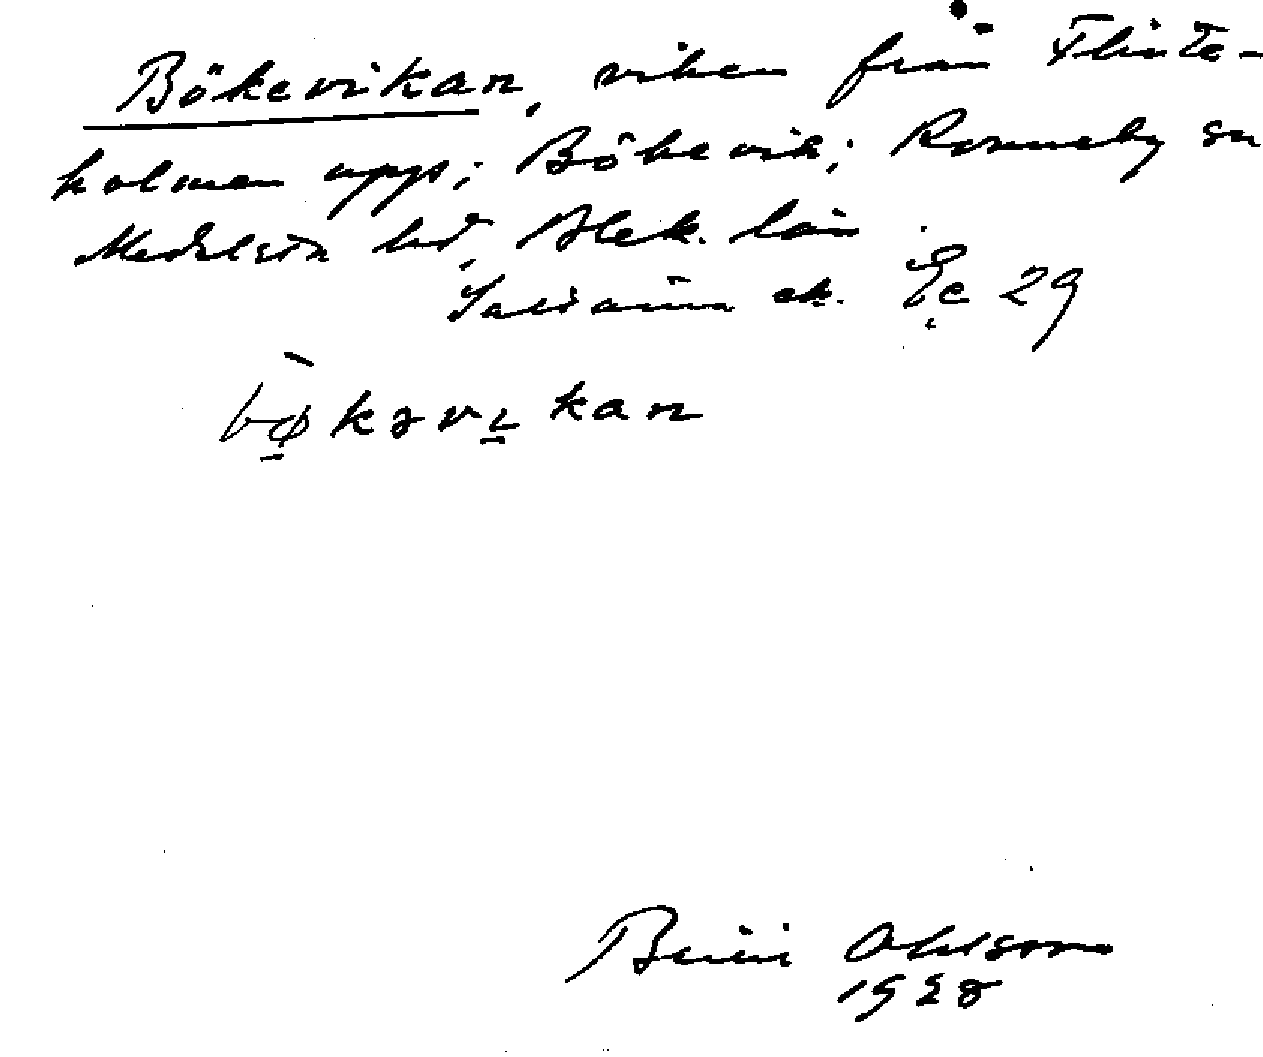 Bökevikan, viken från Flinte-
holmen upps; Bökevik; Ronneby sn
Medelsta hd, Blek. län.
ek. Ec 29
bø̀kəvıkan
Ohlsson
1928